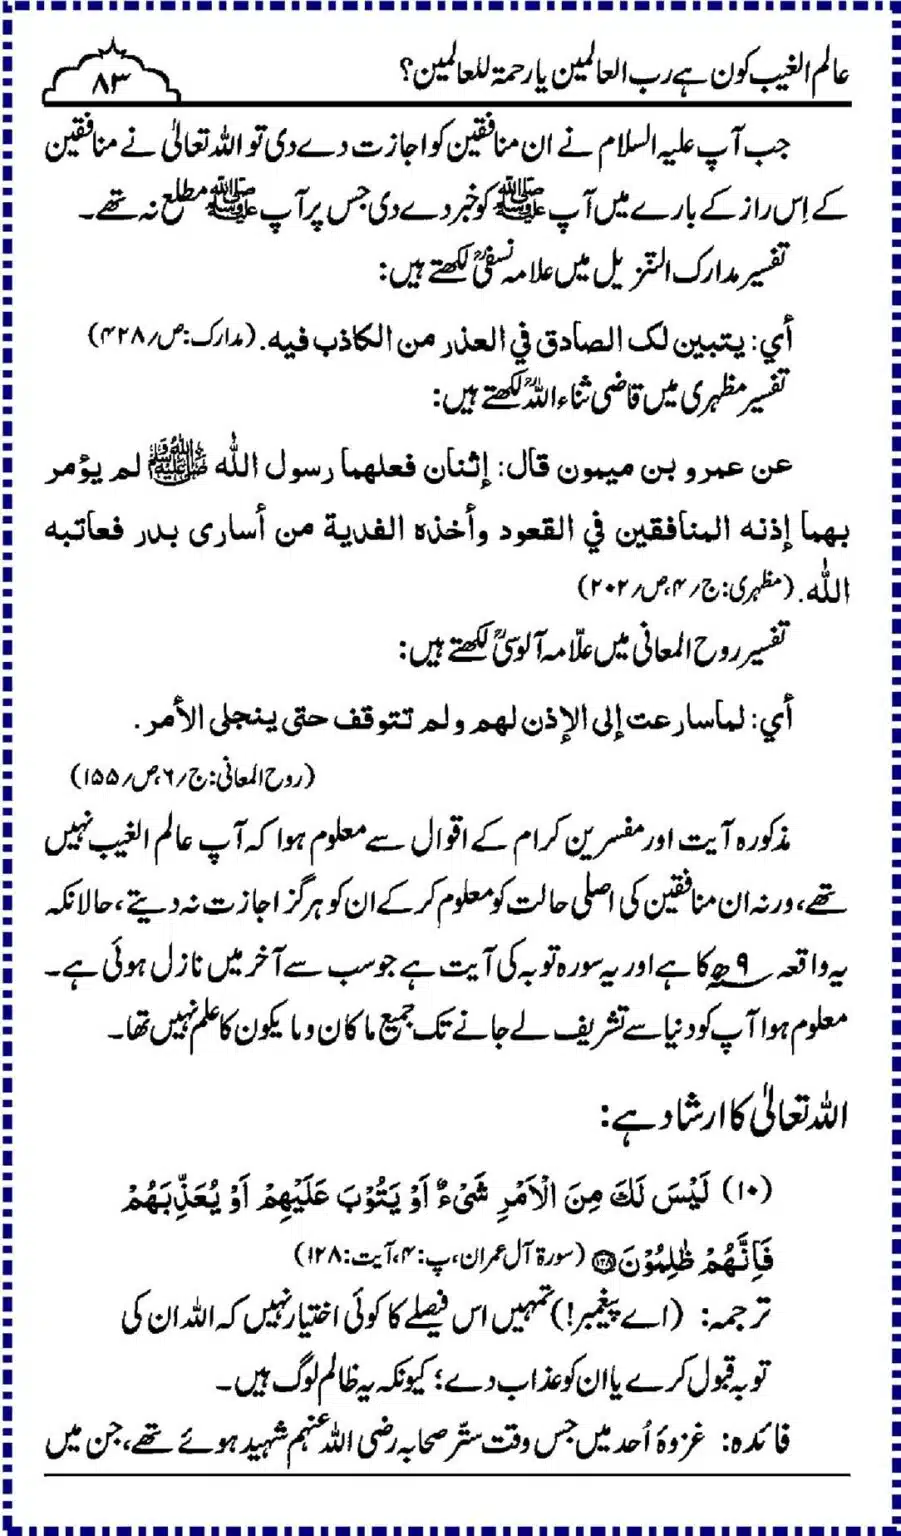 عالم الغیب کون ہے رب العالمین یا رحمۃ للعالمین؟
۸۳
جب آپ علیہ السلام نے ان منافقین کو اجازت دے دی تو اللہ تعالیٰ نے منافقین
کے اِس راز کے بارے میں آپ ﷺ کو خبر دے دی جس پر آپ ﷺ مطلع نہ تھے۔
تفسیر مدارک التنزیل میں علامہ نسفیؒ لکھتے ہیں:
أي: یتبین لک الصادق في العذر من الکاذب فیه. (مدارک:ص؍۴۲۸)
تفسیر مظہری میں قاضی ثناء اللہؒ لکھتے ہیں:
عن عمرو بن میمون قال: إثنان فعلهما رسول الله ﷺ لم یؤمر
بهما إذنه المنافقین في القعود وأخذه الفدیة من أساری بدر فعاتبه
الله. (مظہری:ج؍۴،ص؍۲۰۲)
تفسیر روح المعانی میں علّامہ آلوسیؒ لکھتے ہیں:
أي: لماسارعت إلی الإذن لهم ولم تتوقف حتی ینجلی الأمر.
(روح المعانی:ج؍۶،ص؍۱۵۵)
مذکورہ آیت اور مفسرین کرام کے اقوال سے معلوم ہوا کہ آپ عالم الغیب نہیں
تھے، ورنہ ان منافقین کی اصلی حالت کو معلوم کرکے ان کو ہرگز اجازت نہ دیتے، حالانکہ
یہ واقعہ ۹ھ کا ہے اور یہ سورہ توبہ کی آیت ہے جو سب سے آخر میں نازل ہوئی ہے۔
معلوم ہوا آپ کو دنیا سے تشریف لے جانے تک جمیع ما کان وما یکون کا علم نہیں تھا۔
اللہ تعالیٰ کا ارشاد ہے:
(۱۰) لَیْسَ لَكَ مِنَ الْاَمْرِ شَیْءٌ اَوْ یَتُوْبَ عَلَیْهِمْ اَوْ یُعَذِّبَهُمْ
فَاِنَّهُمْ ظٰلِمُوْنَ ۝۱۲۸ (سورۃ آل عمران، پ:۴، آیت:۱۲۸)
ترجمہ: (اے پیغمبر!) تمہیں اس فیصلے کا کوئی اختیار نہیں کہ اللہ ان کی
توبہ قبول کرے یا ان کو عذاب دے؛ کیونکہ یہ ظالم لوگ ہیں۔
فائدہ: غزوۂ اُحد میں جس وقت ستّر صحابہ رضی اللہ عنہم شہید ہوئے تھے، جن میں